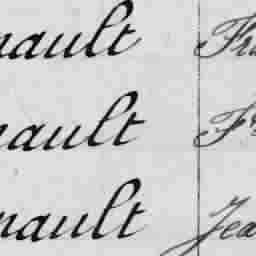 nault Fra
nault Fr
nault Jea